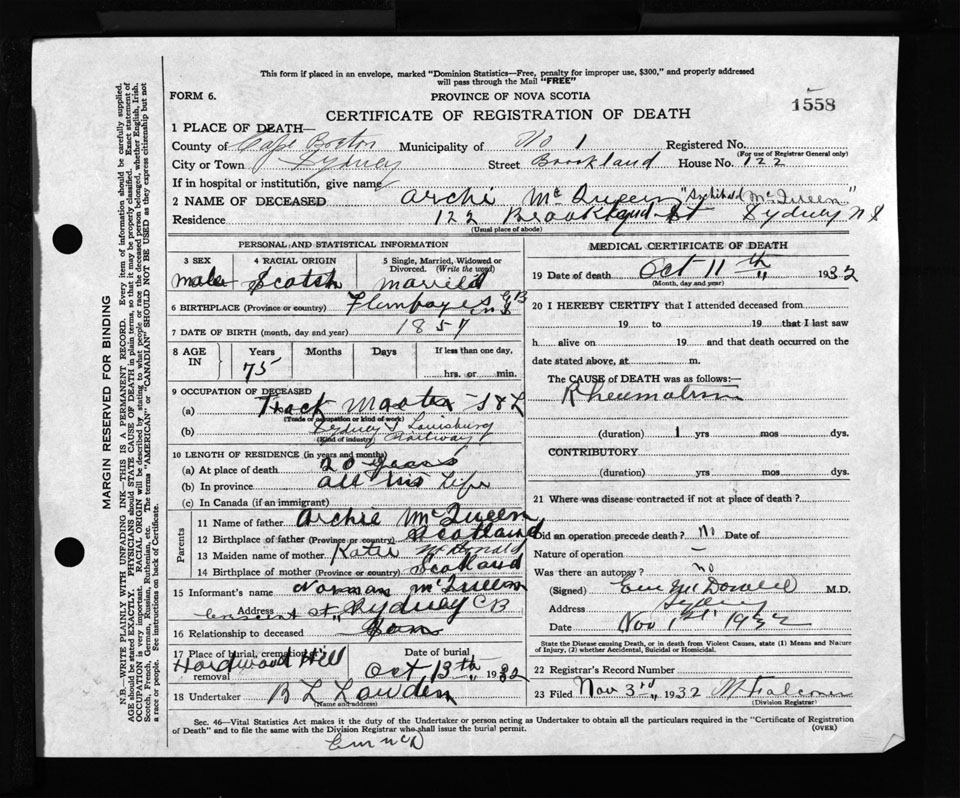 This form if placed in an envelope, marked "Dominion Statistics—Free, penalty for improper use, $300," and properly addressed
will pass through the Mail "FREE"
FORM 6.
PROVINCE OF NOVA SCOTIA
1558
CERTIFICATE OF REGISTRATION OF DEATH
1 PLACE OF DEATH—
County of Cape Breton Municipality of No 1 Registered No.
(For use of Registrar General only)
City or Town Sydney Street Brookland House No. 122
If in hospital or institution, give name
2 NAME OF DECEASED Archi McQueen "Archibald McQueen"
Residence 122 Brookland St Sydney N S
(Usual place of abode)
PERSONAL AND STATISTICAL INFORMATION
3 SEX 4 RACIAL ORIGIN 5 Single, Married, Widowed or Divorced. (Write the word)
male Scotch married
6 BIRTHPLACE (Province or country) C B N S
7 DATE OF BIRTH (month, day and year) 1857
8 AGE IN Years Months Days If less than one day,
75 hrs. or min.
9 OCCUPATION OF DECEASED
(a) Track Master S & L
(Trade or occupation or kind of work)
(b) Sydney & Louisburg Railway
(Kind of industry)
10 LENGTH OF RESIDENCE (in years and months)
(a) At place of death 20 years
(b) In province all his life
(c) In Canada (if an immigrant)
Parents
11 Name of father Archie McQueen
12 Birthplace of father (Province or country) Scotland
13 Maiden name of mother Katie McDonald
14 Birthplace of mother (Province or country) Scotland
15 Informant's name Norman McQueen
Address St Sydney C B
16 Relationship to deceased Son
17 Place of burial, cremation or removal Date of burial
Hardwood Hill Oct 13th 1932
18 Undertaker B L Lowden
(Name and address)
MEDICAL CERTIFICATE OF DEATH
19 Date of death Oct 11th 1932
(Month, day and year)
20 I HEREBY CERTIFY that I attended deceased from
19 to 19 that I last saw
h alive on 19 and that death occurred on the
date stated above, at m.
The CAUSE of DEATH was as follows:—
Rheumatism
(duration) 1 yrs mos dys.
CONTRIBUTORY
(duration) yrs mos dys.
21 Where was disease contracted if not at place of death?
Did an operation precede death? No Date of
Nature of operation –
Was there an autopsy? no
(Signed) McDonald M.D.
Address Sydney
Date Nov 1st, 1932
State the Disease causing Death, or in death from Violent Causes, state (1) Means and Nature of Injury, (2) whether Accidental, Suicidal or Homicidal.
22 Registrar's Record Number
23 Filed Nov 3rd 1932
(Division Registrar)
Sec. 46—Vital Statistics Act makes it the duty of the Undertaker or person acting as Undertaker to obtain all the particulars required in the "Certificate of Registration
of Death" and to file the same with the Division Registrar who shall issue the burial permit. (OVER)
MARGIN RESERVED FOR BINDING
N.B.—WRITE PLAINLY WITH UNFADING INK—THIS IS A PERMANENT RECORD. Every item of information should be carefully supplied.
AGE should be stated EXACTLY. PHYSICIANS should STATE CAUSE OF DEATH in plain terms, so that it may be properly classified. Exact statement of
OCCUPATION is very important. RACIAL ORIGIN will be described by stating to what people or race the deceased person belonged, whether English, Irish,
Scotch, French, German, Russian, Ruthenian, etc. The terms "AMERICAN" or "CANADIAN" SHOULD NOT BE USED as they express citizenship but not
a race or people. See instructions on back of Certificate.